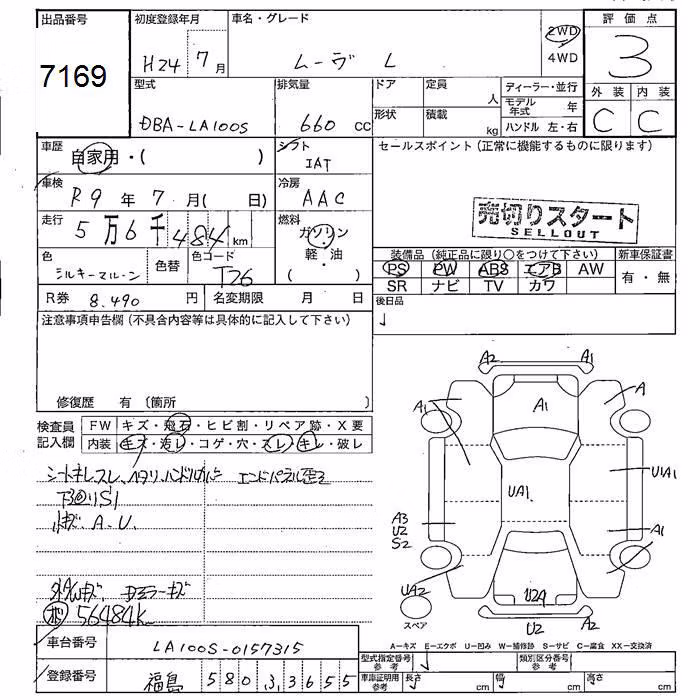 出品番号
7169
初度登録年月
H24年7月
車名・グレード
ムーヴ L
2WD
4WD
評価点
3
外装 内装
C C
型式
DBA-LA100S
排気量
660 cc
ドア
定員 人
形状
積載 kg
ディーラー・並行
モデル年式 年
ハンドル 左・右
車歴
自家用・( )
シフト
IAT
セールスポイント(正常に機能するものに限ります)
売切りスタート
SELLOUT
車検
R9年7月( 日)
冷房
AAC
走行
5万6千484km
燃料
ガソリン
軽・油
( )
色
シルキーマルーン
色替
色コード
T26
装備品(純正品に限り○をつけて下さい)
PS PW ABS エアB AW
SR ナビ TV カワ
新車保証書
有・無
R券 8.490円
名変期限 月 日
後日品
注意事項申告欄(不具合内容等は具体的に記入して下さい)
修復歴 有〔箇所 〕
検査員記入欄
FW キズ・飛石・ヒビ割・リペア跡・X要
内装 キズ・汚レ・コゲ・穴・スレ・キレ・破レ
シートキレ,スレ、ヘタリ,ハンドルカバー エンドパネル歪
下回りS1
小キズ A.U.
外AWキズ
ミラーキズ
56484k
A2 A1
A1 A1 A
UA1 U1A1
A3
U2
S2
A1
UA2
U2A
U2 A2
スペア
A-キズ E-エクボ U-凹み W-補修跡 S-サビ C-腐食 XX-交換済
車台番号 LA100S-0157315
登録番号 福島 580 3 3655
型式指定番号 参考
類別区分番号 参考
車庫証明用 参考
長さ cm 幅 cm 高さ cm